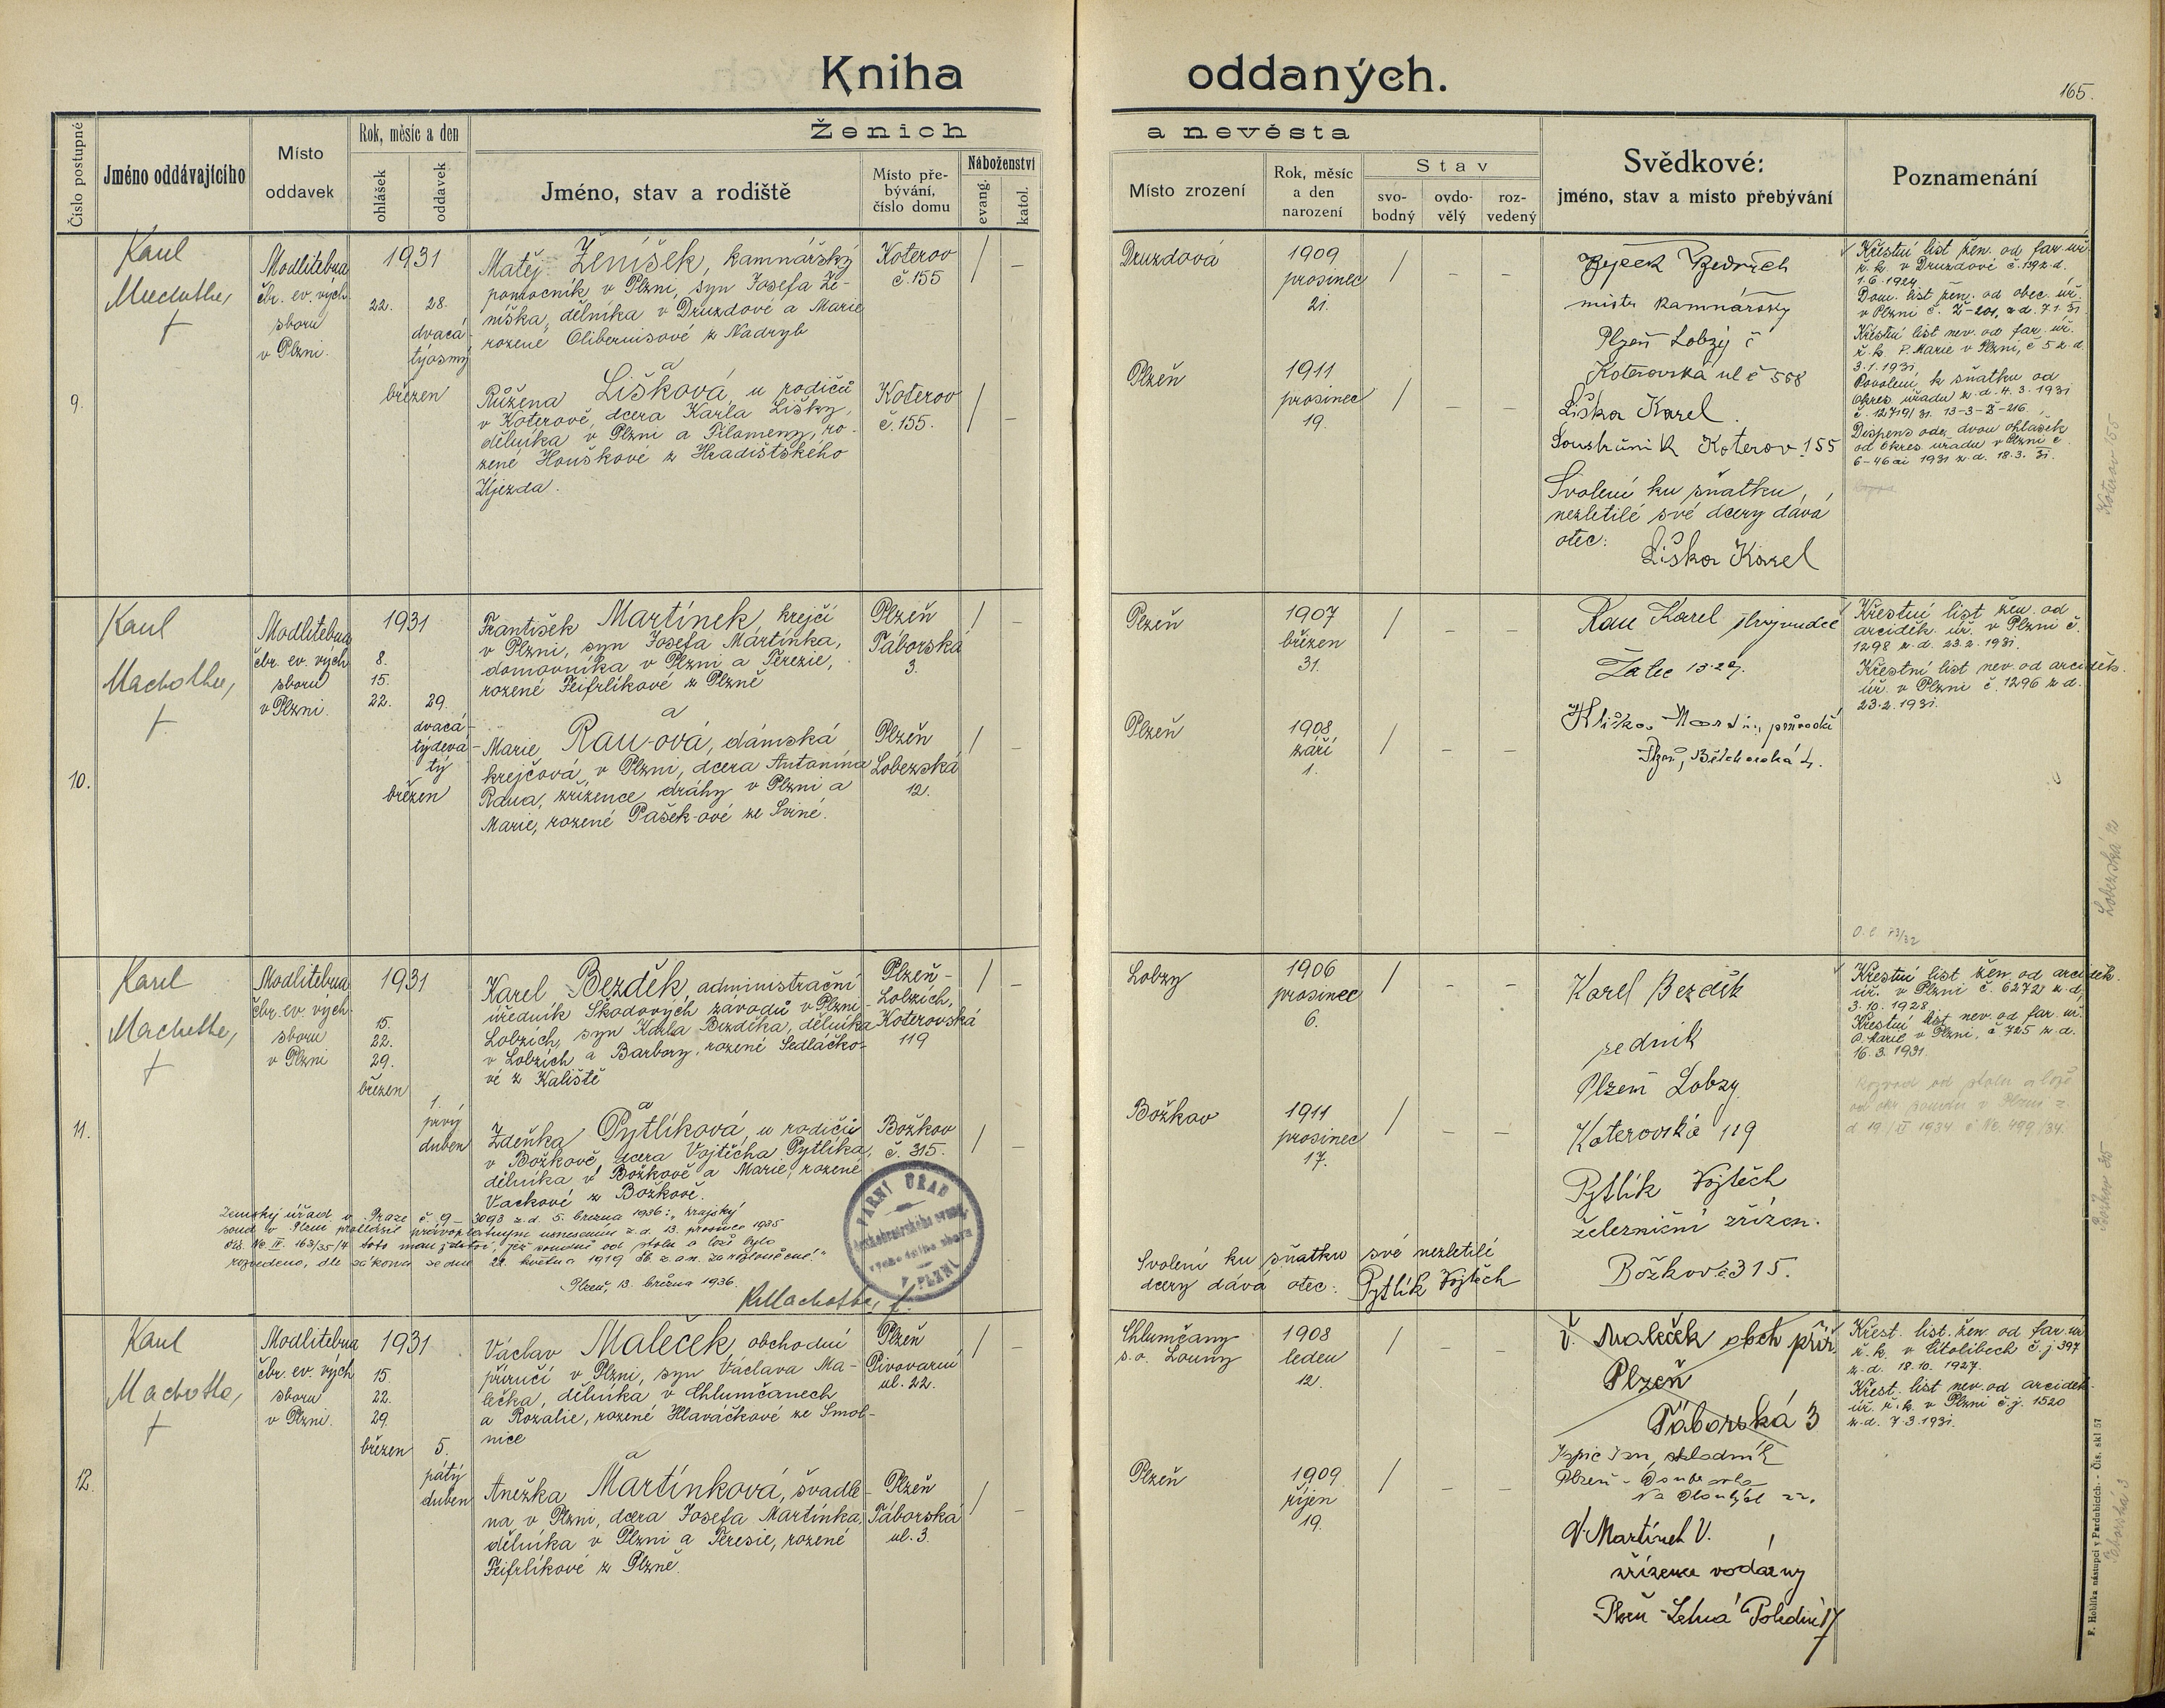 Kniha oddaných.
165.
Číslo postupné
Jméno oddávajícího
Místo
oddavek
Rok, měsíc a den
ohlášek
oddavek
Ženich
a nevěsta
Jméno, stav a rodiště
Místo pře-
bývání,
číslo domu
Náboženství
evang.
katol.
Místo zrození
Rok, měsíc
a den
narození
Stav
svo-
bodný
ovdo-
vělý
roz-
vedený
Svědkové:
jméno, stav a místo přebývání
Poznamenání
9.
Karel
Machotka,
f
Modlitebna
čbr. ev. vých.
sboru
v Plzni.
1931
22. 28.
dvacá-
týosmý
březen
Matěj Ženíšek, kamnářský
pomocník v Plzni, syn Josefa Že-
níška, dělníka v Druzdové a Marie
rozené Olibernisové z Nadryb
a
Růžena Lišková, u rodičů
v Koterově, dcera Karla Lišky,
dělníka v Plzni a Filomeny, ro-
zené Houškové z Hradištského
Újezda.
Koterov
č. 155
Koterov
č. 155.
Druzdová
1909
prosinec
21.
Plzeň
1911
prosinec
19.
Bedřich
mistr kamnářský
Plzeň Lobzy č
Koterovská ul č 558
Liška Karel
Soustružník Koterov 155
Svolení ku sňatku,
nezletilé své dcery dává
otec:
Liška Karel
Křestní list žen. od far. úř.
ř. k. v Druzdové č. 139 z. d.
1.6.1924.
Dom. list žen. od obec. úř.
v Plzni č. Ž-201, z d. 7.1.31.
Křestní list nev. od far. úř.
ř. k. P. Marie v Plzni, č 5 z. d.
3.1.1931.
Povolení k sňatku od
okres. úřadu z. d. 4. 3. 1931
č. 12719/31. 13-3-Ž-216.
Dispens ode dvou ohlášek
od okres. úřadu v Plzni č.
6-46 ai 1931 z. d. 18. 3. 31.
Koterov 155
10.
Karel
Machotka,
f
Modlitebna
čbr. ev. vých
sboru
v Plzni.
1931
8.
15.
22. 29.
dvacá-
týdevá-
tý
březen
František Martínek, krejčí
v Plzni, syn Josefa Martínka,
domovníka v Plzni a Terezie,
rozené Feifrlíkové z Plzně
a
Marie Rau-ová, dámská
krejčová v Plzni, dcera Antonína
Raua, zřízence dráhy v Plzni a
Marie, rozené Pašek-ové ze Sviné.
Plzeň
Táborská
3.
Plzeň
Lobezská
12.
Plzeň
1907
březen
31.
Plzeň
1908
září
1.
Rau Karel strojvůdce
Žatec 1329.
Plzeň,
Křestní list žen. od
arciděk. úř. v Plzni č.
1298 z. d. 23.2.1931.
Křestní list nev. od arciděk.
úř. v Plzni č. 1296 z d.
23.2.1931.
Lobezská 12
11.
Karel
Machotka,
f
Modlitebna
čbr. ev. vých.
sboru
v Plzni
1931
15.
22.
29.
březen
1.
prvý
duben
Karel Bezděk, administrační
úředník Škodových závodů v Plzni-
Lobzích, syn Karla Bezděka, dělníka
v Lobzích a Barbory, rozené Sedláčko-
vé z Kaliště
a
Zdeňka Pytlíková, u rodičů
v Božkově, dcera Vojtěcha Pytlíka,
dělníka v Božkově a Marie, rozené
Vackové z Božkova.
Plzeň-
Lobzích,
Koterovská
119
Božkov
č. 315.
Zemský úřad v Praze č. 9-3093 z. d. 5. března 1936: „krajský
soud v Plzni prohlásil právoplatným usnesením z d. 13. prosince 1935
čís. Nc IV. 163/35/4 toto manželství, jež soudně od stolu a lože bylo
rozvedeno, dle zákona ze dne 22. května 1919 Sb. z. a n. za rozloučené."
Plzeň, 13. března 1936.
K. Machotka, f.
FARNÍ ÚŘAD
Českobratrského evang.
V PLZNI
Lobzy
1906
prosinec
6.
Božkov
1911
prosinec
17.
Svolení ku sňatku své nezletilé
dcery dává otec: Pytlík Vojtěch
Karel Bezděk
Plzeň Lobzy
Koterovská 119
Pytlík Vojtěch
železniční zřízen.
Božkov č 315.
Křestní list žen. od arciděk.
úř. v Plzni č. 6272 z. d.
3.10.1928
Křestní list nev. od far. úř.
P. Marie v Plzni, č 725 z. d.
16.3.1931.
Rozvod od stolu a lože
12.
Karel
Machotka,
f
Modlitebna
čbr. ev. vých
sboru
v Plzni.
1931
15.
22.
29.
březen
5.
pátý
duben
Václav Maleček, obchodní
příručí v Plzni, syn Václava Ma-
lečka, dělníka v Chlumčanech
a Rozalie, rozené Hlaváčkové ze Smol-
nice
a
Anežka Martínková, švadle-
na v Plzni, dcera Josefa Martínka,
dělníka v Plzni a Teresie, rozené
Feifrlíkové z Plzně.
Plzeň
Pivovarní
ul. 22.
Plzeň
Táborská
ul. 3.
Chlumčany
s. o. Louny
1908
leden
12.
Plzeň
1909
říjen
19.
V. Maleček obch přír.
Plzeň
Táborská 3
Jan, skladník
Plzeň - Doubravka
V. Martínek V.
zřízenec vodárny
Plzeň - Letná Polední 17
Křest. list. žen. od far. úř
ř. k. v Cítolibech č. j 397
z. d. 18.10.1927.
Křest. list nev. od arciděk.
úř. ř. k. v Plzni č. j. 1520
z. d. 7.3.1931.
Táborská 3
F. Hoblíka nástupci v Pardubicích. - Čís. skl 57